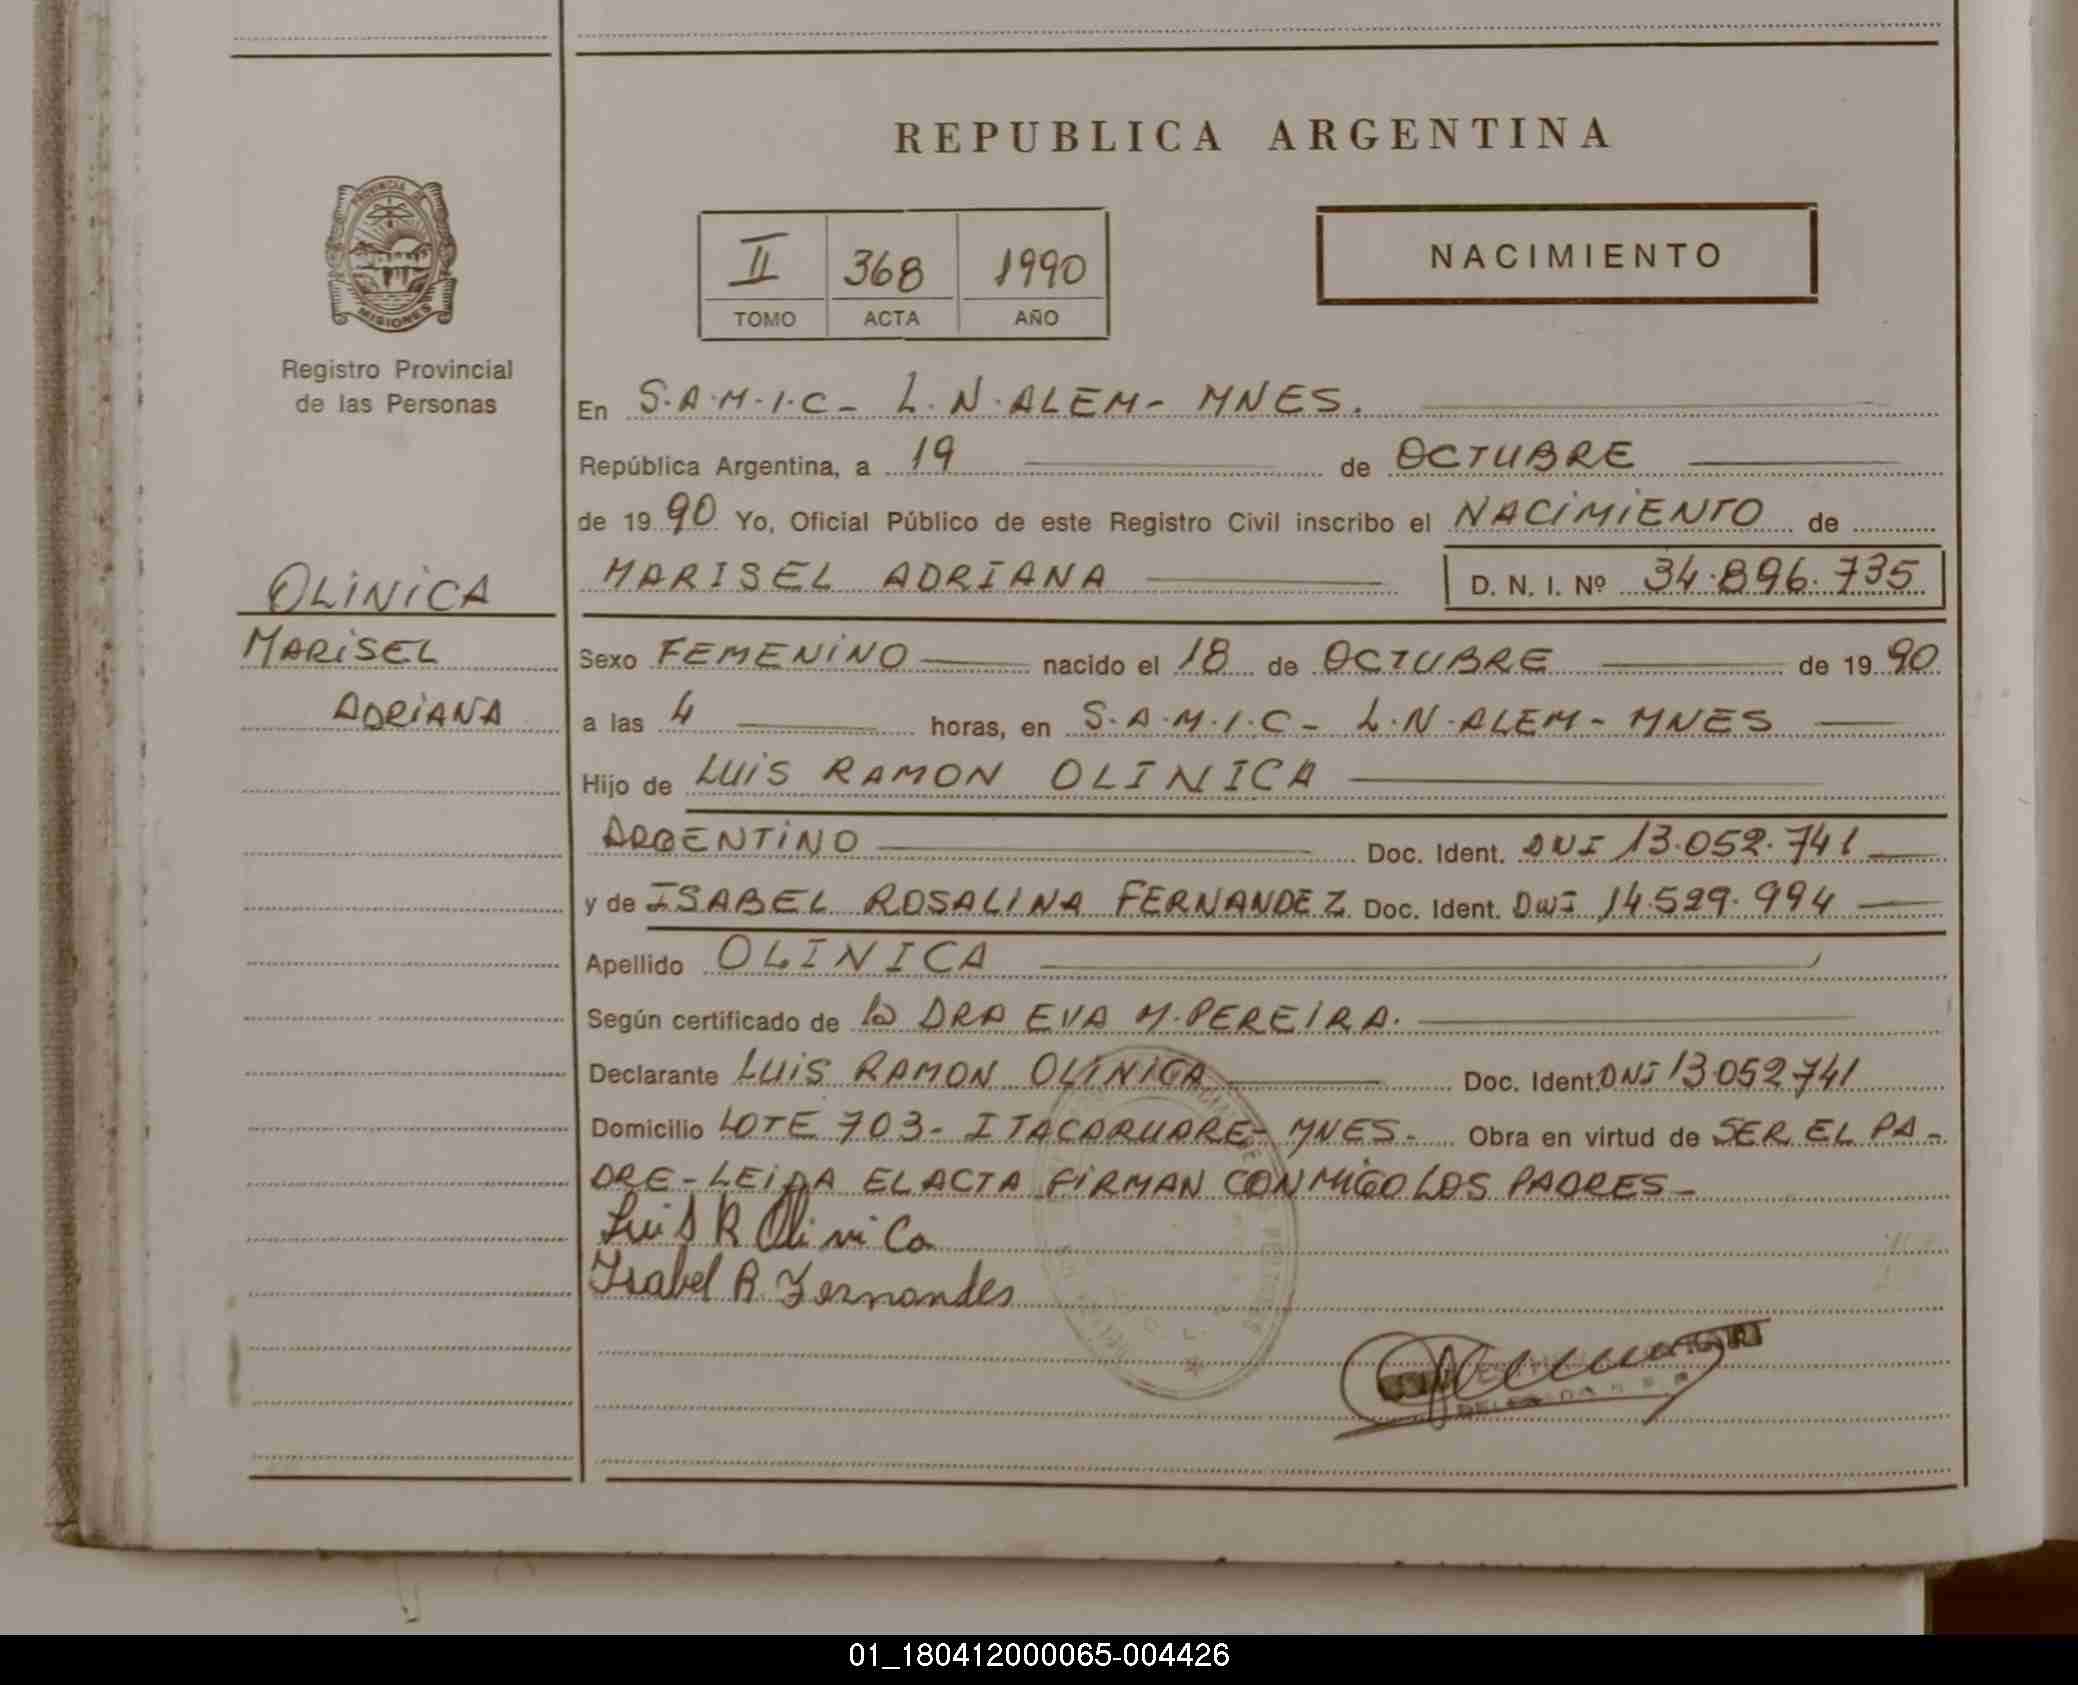 REPUBLICA ARGENTINA
PROVINCIA DE
MISIONES
Registro Provincial
de las Personas
II 368 1990
TOMO ACTA AÑO
NACIMIENTO
En S.A.M.I.C- L.N.ALEM- MNES.
República Argentina, a 19 de OCTUBRE
de 1990 Yo, Oficial Público de este Registro Civil inscribo el NACIMIENTO de
MARISEL ADRIANA D. N. I. Nº 34.896.735
OLINICA
MARISEL
ADRIANA
Sexo FEMENINO nacido el 18 de OCTUBRE de 1990
a las 4 horas, en S.A.M.I.C- L.N.ALEM- MNES
Hijo de LUIS RAMON OLINICA
ARGENTINO Doc. Ident. DNI 13.052.741
y de ISABEL ROSALINA FERNANDEZ Doc. Ident. DNI 14.529.994
Apellido OLINICA
Según certificado de la DRA EVA M.PEREIRA.
Declarante LUIS RAMON OLINICA Doc. Ident. DNI 13.052.741
Domicilio LOTE 703- ITACARUARE- MNES- Obra en virtud de SER EL PA-
DRE-LEIDA EL ACTA FIRMAN CONMIGO LOS PADRES-
Luis R Olinica
Isabel R. Fernandes
01_180412000065-004426